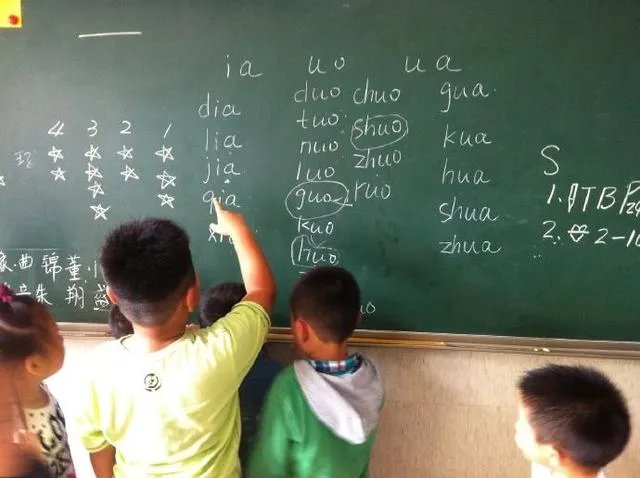 ia uo ua
dia duo chuo gua
lia tuo shuo kua
jia nuo zhuo hua
qia luo ruo shua
guo zhua
kuo
huo
4 3 2 1
曲 锦 董
朱 翔
S
1. TB
2. 2-10
uo